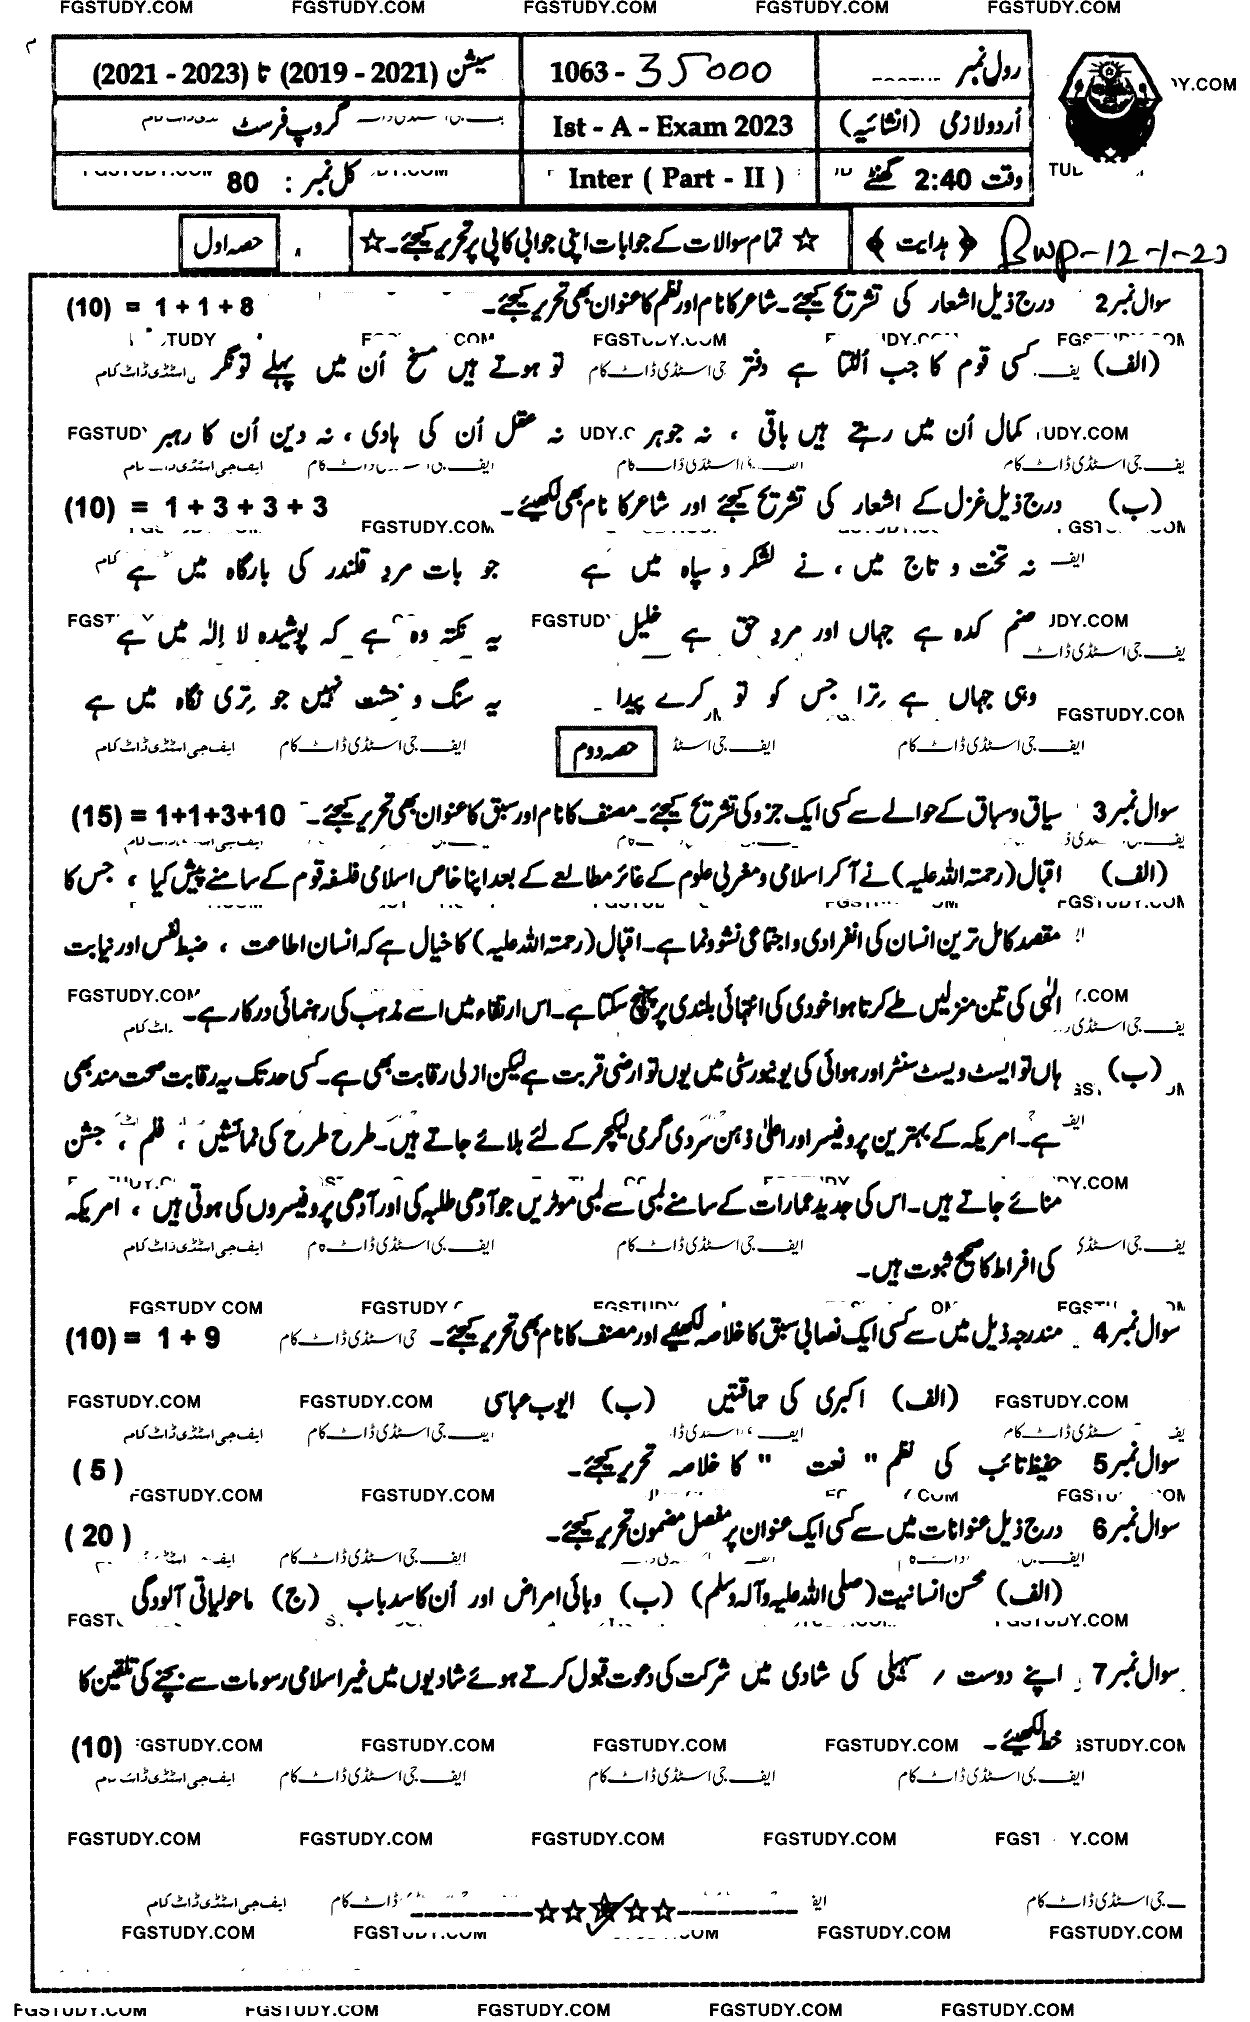 FGSTUDY.COM FGSTUDY.COM FGSTUDY.COM FGSTUDY.COM FGSTUDY.COM
رول نمبر 1063 - 35000 سیشن (2021 - 2019) تا (2023 - 2021)
اُردو لازمی (انشائیہ) Ist - A - Exam 2023 گروپ فرسٹ
وقت 2:40 گھنٹے Inter ( Part - II ) کل نمبر : 80
Bwp-12-1-23 ﴿ ہدایت ﴾ ☆ تمام سوالات کے جوابات اپنی جوابی کاپی پر تحریر کیجئے۔ ☆ حصہ اول
سوال نمبر 2 درج ذیل اشعار کی تشریح کیجئے۔ شاعر کا نام اور نظم کا عنوان بھی تحریر کیجئے۔ (10) = 1 + 1 + 8
(الف) کسی قوم کا جب اُلٹتا ہے دفتر تو ہوتے ہیں مسخ اُن میں پہلے تونگر
کمال اُن میں رہتے ہیں باقی ، نہ جوہر نہ عقل اُن کی ہادی ، نہ دین اُن کا رہبر
(ب) درج ذیل غزل کے اشعار کی تشریح کیجئے اور شاعر کا نام بھی لکھیئے۔ (10) = 1 + 3 + 3 + 3
نہ تخت و تاج میں ، نے لشکر و سپاہ میں ہے جو بات مردِ قلندر کی بارگاہ میں ہے
صنم کدہ ہے جہاں اور مردِ حق ہے خلیل یہ نکتہ وہ ہے کہ پوشیدہ لا اِلٰہ میں ہے
وہی جہاں ہے تِرا جس کو تو کرے پیدا یہ سنگ و خشت نہیں جو تِری نگاہ میں ہے
FGSTUDY.COM
حصہ دوم
سوال نمبر 3 سیاق و سباق کے حوالے سے کسی ایک جزو کی تشریح کیجئے۔ مصنف کا نام اور سبق کا عنوان بھی تحریر کیجئے۔ (15) = 1+1+3+10
(الف) اقبال (رحمتہ اللہ علیہ) نے آ کر اسلامی و مغربی علوم کے غائر مطالعے کے بعد اپنا خاص اسلامی فلسفہ قوم کے سامنے پیش کیا ، جس کا
مقصد کامل ترین انسان کی انفرادی و اجتماعی نشوونما ہے۔ اقبال (رحمتہ اللہ علیہ) کا خیال ہے کہ انسان اطاعت ، ضبطِ نفس اور نیابت
الٰہی کی تین منزلیں طے کرتا ہوا خودی کی انتہائی بلندی پر پہنچ سکتا ہے۔ اس ارتقاء میں اسے مذہب کی رہنمائی درکار ہے۔
(ب) ہاں تو ایسٹ ویسٹ سنٹر اور ہوائی کی یونیورسٹی میں یوں تو ارضی قربت ہے لیکن ازلی رقابت بھی ہے۔ کسی حد تک یہ رقابت صحت مند بھی
ہے۔ امریکہ کے بہترین پروفیسر اور اعلیٰ ذہن سردی گرمی لیکچر کے لئے بلائے جاتے ہیں۔ طرح طرح کی نمائشیں ، فلم ، جشن
منائے جاتے ہیں۔ اس کی جدید عمارات کے سامنے لمبی سے لمبی موٹریں جو آدھی طلبہ کی اور آدھی پروفیسروں کی ہوتی ہیں ، امریکہ
کی افراط کا صحیح ثبوت ہیں۔
سوال نمبر 4 مندرجہ ذیل میں سے کسی ایک نصابی سبق کا خلاصہ لکھیئے اور مصنف کا نام بھی تحریر کیجئے۔ (10) = 1 + 9
(الف) اکبری کی حماقتیں (ب) ایوب عباسی
سوال نمبر 5 حفیظ تائب کی نظم " نعت " کا خلاصہ تحریر کیجئے۔ (5)
سوال نمبر 6 درج ذیل عنوانات میں سے کسی ایک عنوان پر مفصل مضمون تحریر کیجئے۔ (20)
(الف) محسنِ انسانیت (صلی اللہ علیہ وآلہ وسلم) (ب) وبائی امراض اور اُن کا سدباب (ج) ماحولیاتی آلودگی
سوال نمبر 7 اپنے دوست / سہیلی کی شادی میں شرکت کی دعوت قبول کرتے ہوئے شادیوں میں غیر اسلامی رسومات سے بچنے کی تلقین کا
خط لکھیئے۔ (10)
FGSTUDY.COM FGSTUDY.COM FGSTUDY.COM FGSTUDY.COM
FGSTUDY.COM FGSTUDY.COM FGSTUDY.COM FGSTUDY.COM
FGSTUDY.COM FGSTUDY.COM FGSTUDY.COM
FGSTUDY.COM FGSTUDY.COM FGSTUDY.COM FGSTUDY.COM